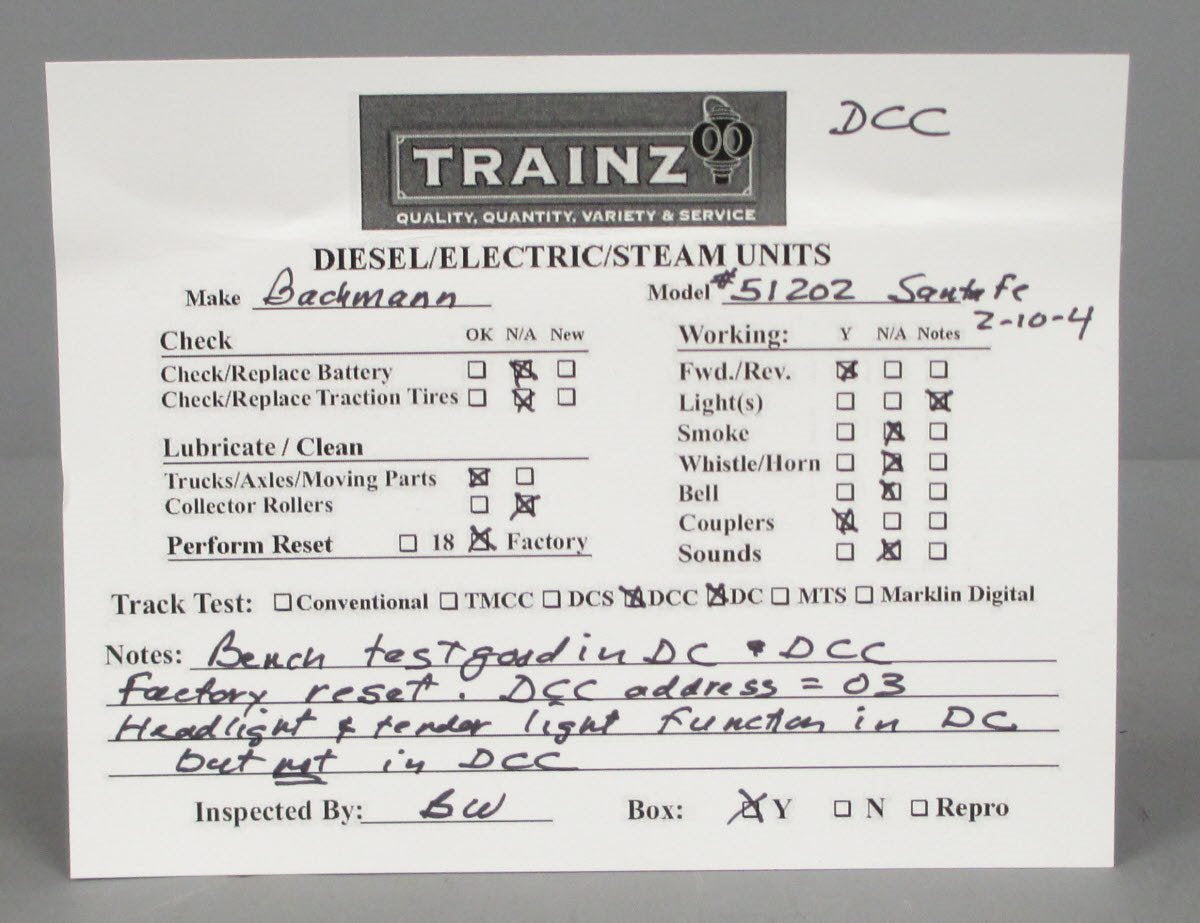 DCC
TRAINZ
QUALITY, QUANTITY, VARIETY & SERVICE
DIESEL/ELECTRIC/STEAM UNITS
Make Bachmann
Model #51202 Santa Fe
2-10-4
Check OK N/A New
Check/Replace Battery ☐ ☒ ☐
Check/Replace Traction Tires ☐ ☒ ☐
Lubricate / Clean
Trucks/Axles/Moving Parts ☒ ☐
Collector Rollers ☐ ☒
Perform Reset ☐ 18 ☒ Factory
Working: Y N/A Notes
Fwd./Rev. ☒ ☐ ☐
Light(s) ☐ ☐ ☒
Smoke ☐ ☒ ☐
Whistle/Horn ☐ ☒ ☐
Bell ☐ ☒ ☐
Couplers ☒ ☐ ☐
Sounds ☐ ☒ ☐
Track Test: ☐ Conventional ☐ TMCC ☐ DCS ☒ DCC ☒ DC ☐ MTS ☐ Marklin Digital
Notes: Bench test good in DC & DCC
factory reset. DCC address = 03
Headlight & tender light function in DC
but not in DCC
Inspected By: BW
Box: ☒ Y ☐ N ☐ Repro